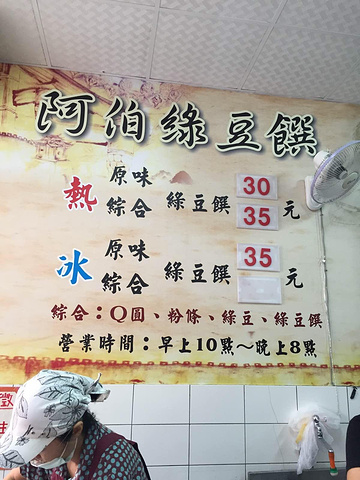 阿伯綠豆饌
熱 原味 綠豆饌 30 元
綜合 35
冰 原味 綠豆饌 35 元
綜合
綜合：Q圓、粉條、綠豆、綠豆饌
營業時間：早上10點～晚上8點
徵